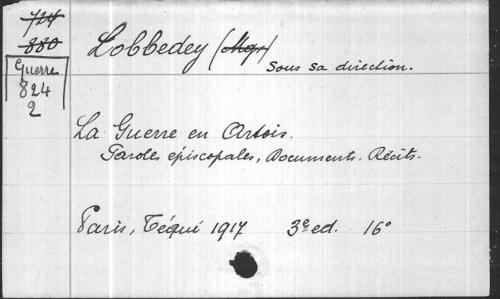 724
880
Guerre
824
2
Lobbedey (Mgr)
Sous sa direction.
La Guerre en Artois.
Paroles épiscopales, Documents. Récits.
Paris, Téqui 1917 3e ed. 16°